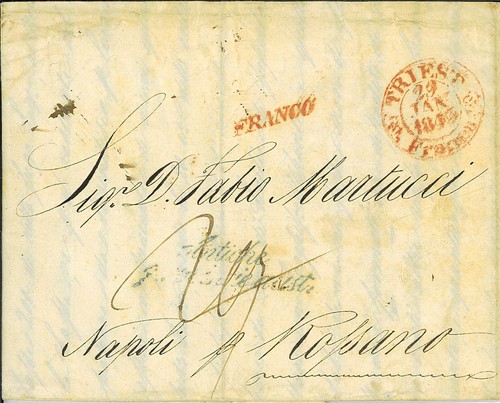 FRANCO
TRIEST
29
JAN
Franco
Sig.r D. Fabio Martucci
Napoli p Rossano